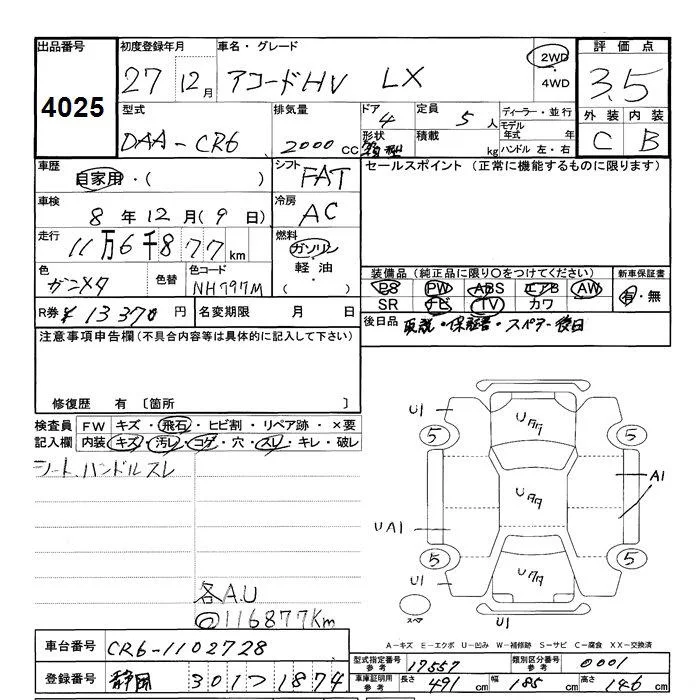 出品番号 4025
初度登録年月 27年 12月
車名・グレード アコードHV LX
2WD・4WD
評価点 3.5
外装 C 内装 B
型式 DAA-CR6
排気量 2000cc
ドア 4
形状 箱型
定員 5人
積載 kg
ディーラー・並行
モデル年式 年
ハンドル 左・右
車歴 自家用・( )
シフト FAT
セールスポイント(正常に機能するものに限ります)
車検 8年12月(9日)
冷房 AC
走行 11万6千877km
燃料 ガソリン・軽油・( )
色 ガンメタ
色替
色コード NH797M
装備品(純正品に限り○をつけてください)
PS PW ABS エアB AW
SR ナビ TV カワ
新車保証書 有・無
R券 ¥13370円
名変期限 月 日
後日品 取説・保証書・スペアキー後日
注意事項申告欄(不具合内容等は具体的に記入して下さい)
修復歴 有〔箇所 〕
検査員記入欄
FW キズ・飛石・ヒビ割・リペア跡・×要
内装 キズ・汚レ・コゲ・穴・スレ・キレ・破レ
シート、ハンドルスレ
各A.U
@116877Km
U1
5
5
UAA
UAA
UAA
A1
UA1
5
5
U1
U1
スペア
A-キズ E-エクボ U-凹み W-補修跡 S-サビ C-腐食 XX-交換済
車台番号 CR6-1102728
登録番号 静岡 301つ1874
型式指定番号 参考 17557
類別区分番号 参考 0001
車庫証明用 参考 長さ 491cm 幅 185cm 高さ 146cm